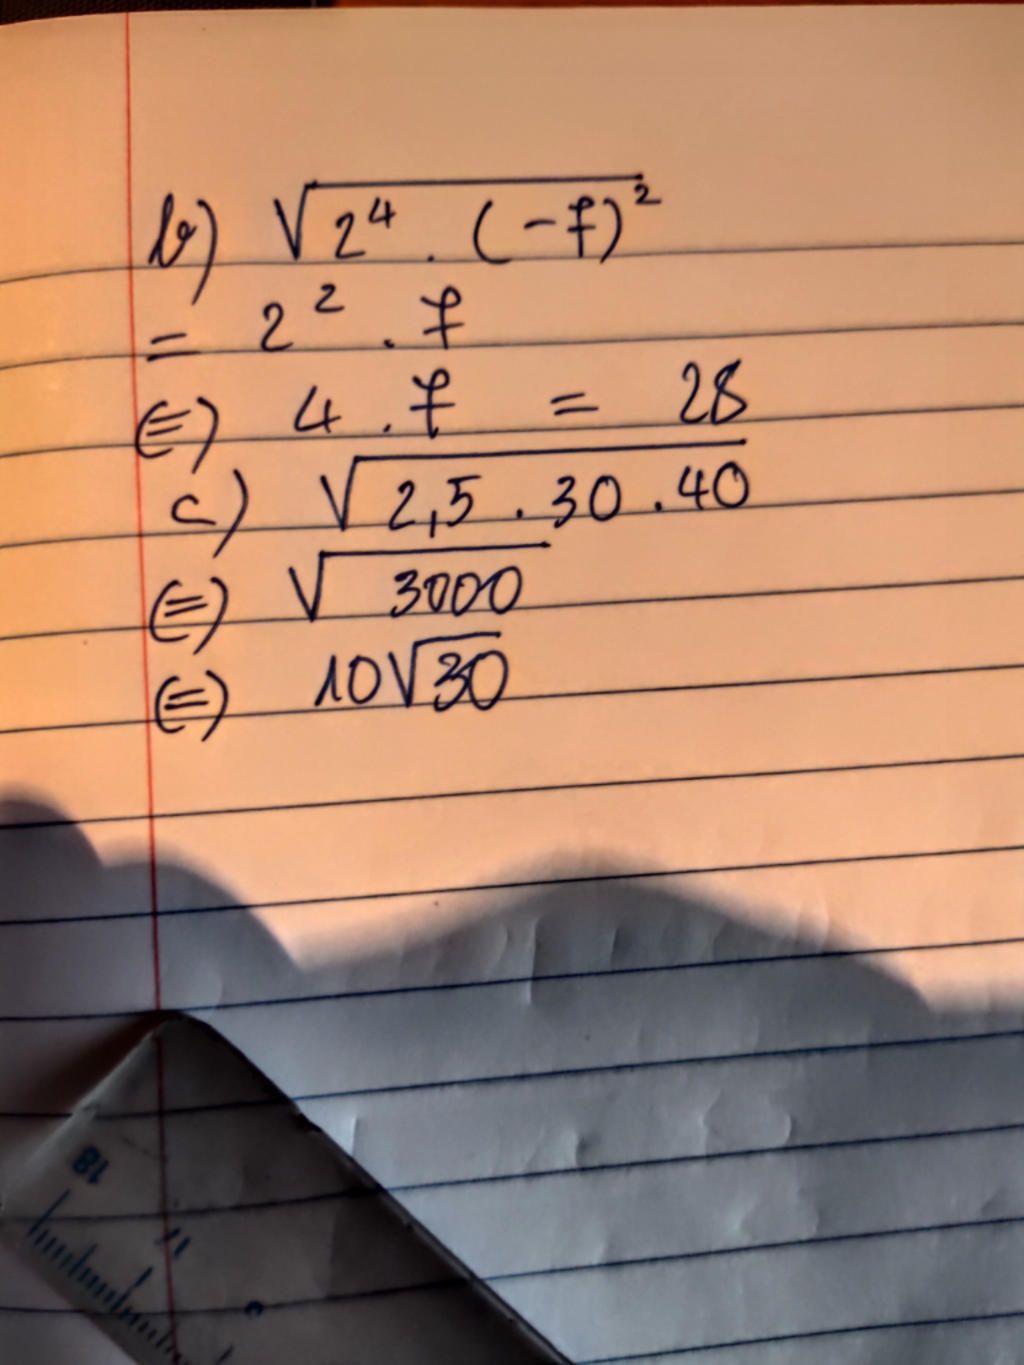 b) √2⁴ . (-7)²
= 2² . 7
(=) 4 . 7 = 28
c) √2,5 . 30 . 40
(=) √3000
(=) 10√30
18
17